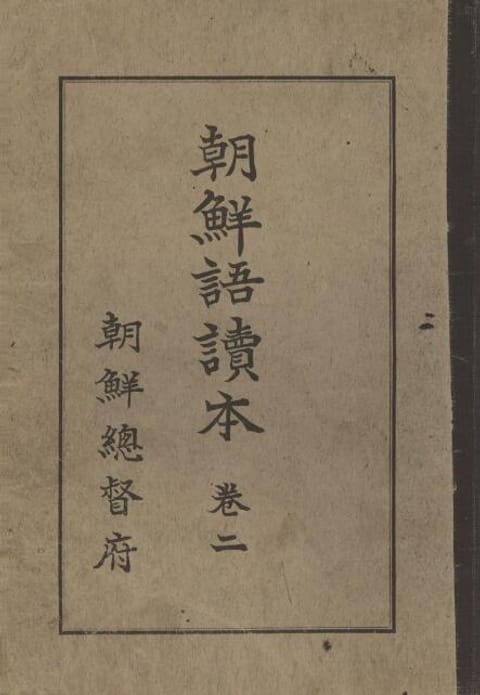 朝鮮語讀本 卷二
朝鮮總督府